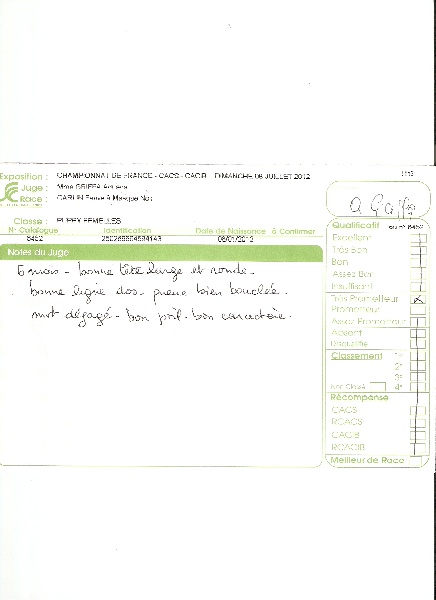 Exposition : CHAMPIONNAT DE FRANCE - CACS - CACIB DIMANCHE 08 JUILLET 2012
Juge : Mme
Race : CARLIN Fauve à Masque Noir
Classe : PUPPY FEMELLES
N° Catalogue Identification Date de Naissance à Confirmer
8452
Notes du Juge
6 mois - bonne tête large et ronde -
bonne ligne dos - queue bien bouclée -
mvt dégagé - bon poil - bon caractère -
Qualificatif au n° 8452
Excellent
Très Bon
Bon
Assez Bon
Insuffisant
Très Prometteur X
Prometteur
Assez Prometteur
Absent
Disqualifié
Classement 1°
2°
3°
Non Classé 4°
Récompense
CACS
RCACS
CACIB
RCACIB
Meilleur de Race